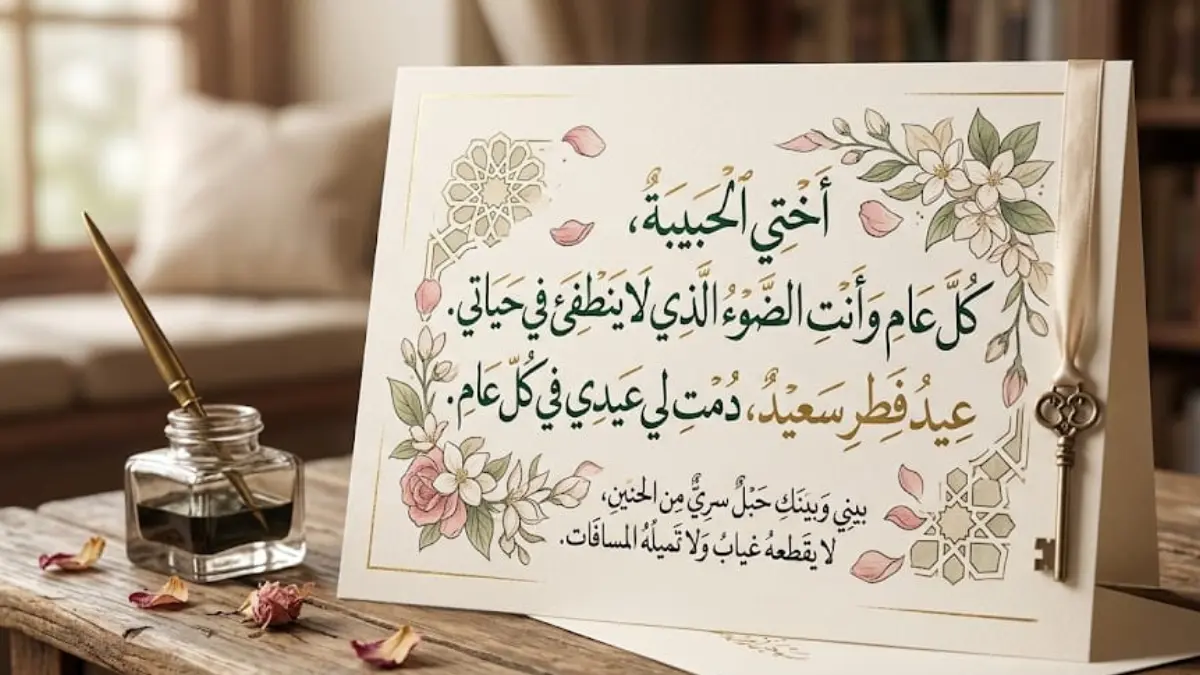 أَخْتِي الْحَبِيبَةُ،
كُلَّ عَامٍ وَأَنْتِ الضَّوْءُ الَّذِي لَا يَنْطَفِئ فِي حَيَاتِي.
عِيدُ فَطِرِ سَعَيْدٌ، دُمْتِ لِي عَيَدِي فِي كُلِّ عَامٍ.
بيني وَبينَكِ حَبْلٌ سريٌّ مِن الحَنينِ،
لا يقَطعهُ غيابٌ وَلا تَميلُهُ المسافَات.